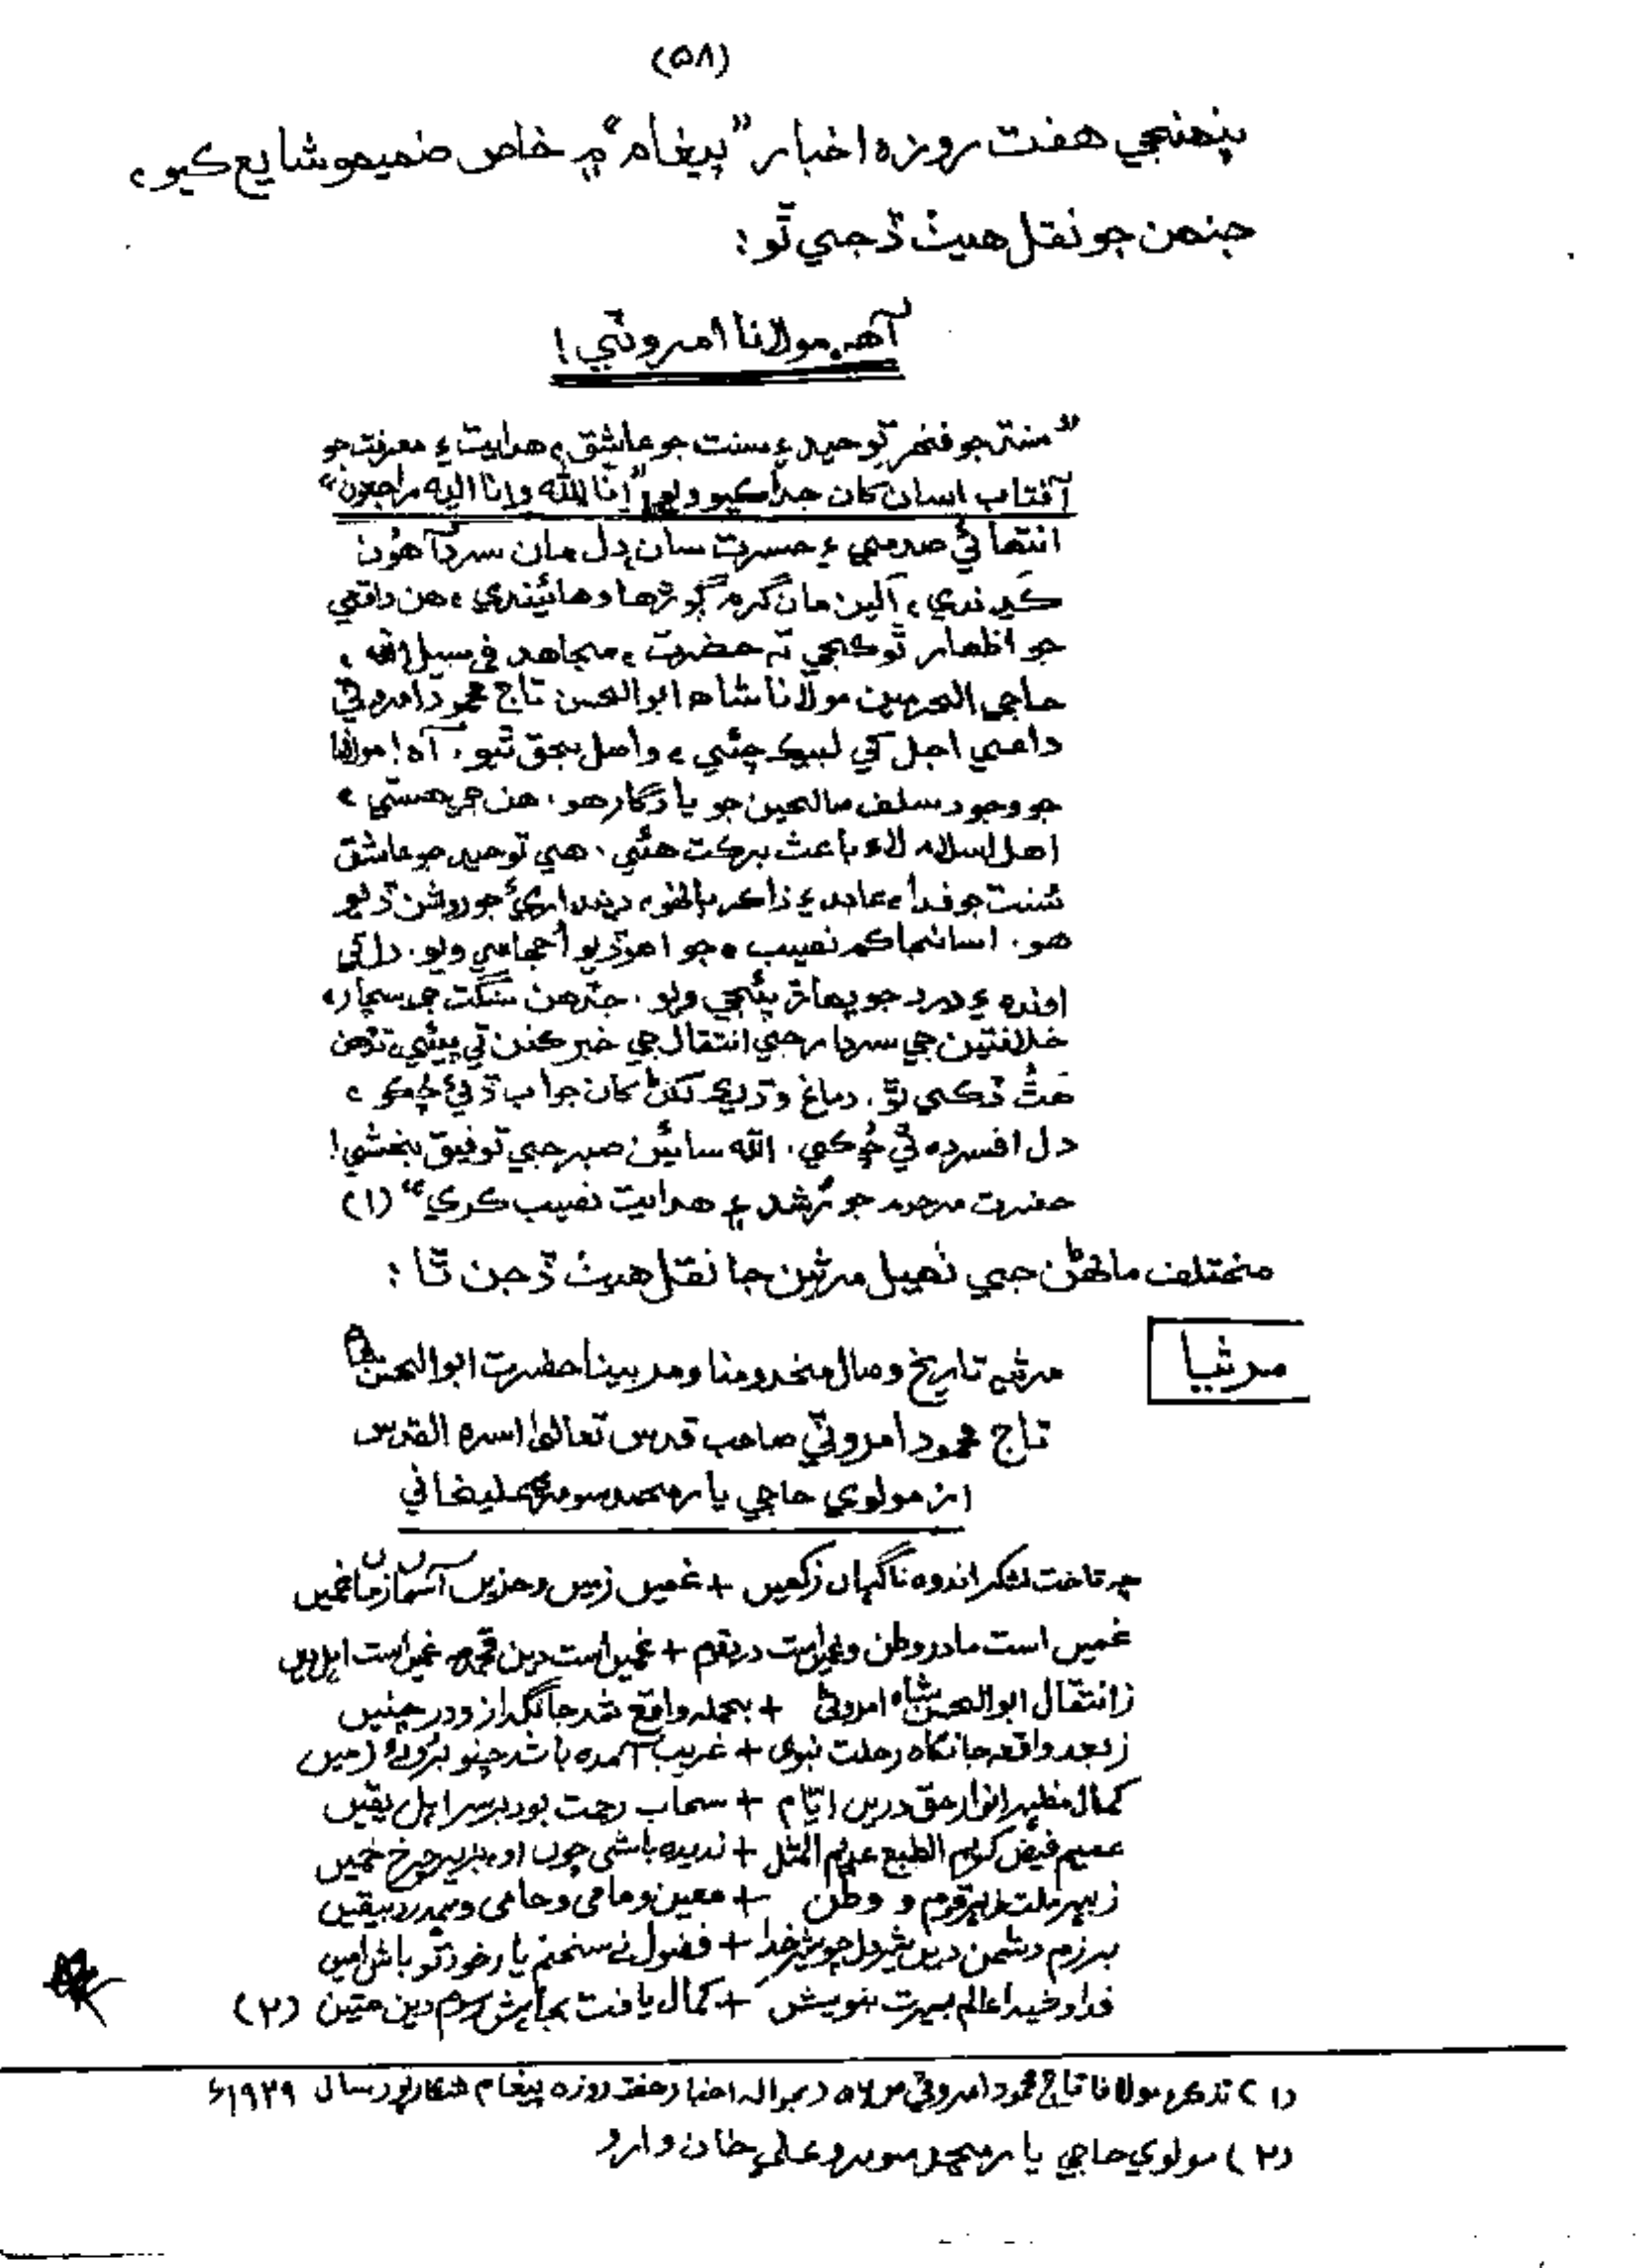 (۵۸)
پنهنجي هفت روزه اخبار ”پيغام“ ۾ خاص ضميمو شايع ڪيو،
جنهن جو نقل هيٺ ڏجي ٿو:
آه مولانا امروٽي!
”سنڌ جو فخر توحيد ۽ سنت جو عاشق، هدايت ۽ معرفت جو
آفتاب اسان کان جدا ڪيو ويو ”انا لله وانا اليه راجعون“
انتهائي صدمي ۽ حسرت سان دل مان سرد آهون
ڪيندي، اکين مان گرم ڳوڙها وهائيندي، هن واقعي
جو اظهار ٿو ڪجي ته حضرت، مجاهد في سبيل الله،
حاجي الحرمين مولانا شاه ابوالحسن تاج محمود امروٽي
داعي اجل کي لبيڪ چئي، واصل بحق ٿيو. آه! مولانا
جو وجود سلف صالحين جو يادگار هو. هن جي هستي،
اهل اسلام لاءِ باعث برڪت هئي. هي توحيد جو عاشق
سُنت جو فدا، عابد ۽ ذاڪر ٻانهو، دينداريءَ جو روشن ڏيئو
هو. اسانجا ڪم نصيب، جو اهو ڏيو اُجهامي ويو. دل تي
اندوه ۽ درد جو پهاڙ پئجي ويو. جڏهن سنگت جي سچار،
خلافتين جي سردار جي انتقال جي خبر ڪنن تي پيئي، تڏهن
هَٿُ ڏڪي ٿو. دماغ وڌيڪ لکڻ کان جواب ڏئي چڪو،
دل افسرده ٿي چُڪي. الله سائين صبر جي توفيق بخشي!
حضرت مرحوم جو رُشد ۽ هدايت نصيب ڪري“ (۱)
مختلف ماڻهن جي ٺهيل مرثين جا نقل هيٺ ڏجن ٿا:
مرثيا
مرثيه تاريخ وصال مخدومنا ومربينا حضرت ابوالحسن شاه
تاج محمود امروٽي صاحب قدس تعاليٰ اسره القدس
از مولوي حاجي يار محمد سومرو عليخاني
چه تاخت لشکر اندوه ناگہاں زکمیں + غمیں زمیں وحزیں آسماں زماں غمیں
غمیں است مادر وطن وغمیں است درد قوم + غمیں است دین غمیں است اہل دیں
زانتقال ابوالحسن شاہ امروٹی + بجملہ واقع شد جانگداز ودر چنیں
زبعد واقعہ جانکاہ رحلت نبوی + غریب آمدہ باشد چنو بروئے زمیں
کمال مظہر انوار حق دریں ایّام + سحاب رحمت بود برسر اہل یقیں
عمیم فیض کریم الطبع عدیم المثل + ندیدہ باشی چوں او بزیر چرخ خمیں
زبہر ملت وبہر قوم و وطن + معین وحامی وہمدرد بیقیں
برزم دشمن دیں شیردل چو شیر خدا + فضول نے سخنم یار خود تو باش امیں
فدا وشیدا عالم بسیرت خویش + کمال یافت بجایش رسم دین متین (۲)
(۱) تذڪره مولانا تاج محمود امروٽي ص ۵۶ (بحواله اخبار هفته روزه پيغام شڪارپور سال ۱۹۲۹ع
(۲) مولوي حاجي يار محمد سومرو علي خان وارو